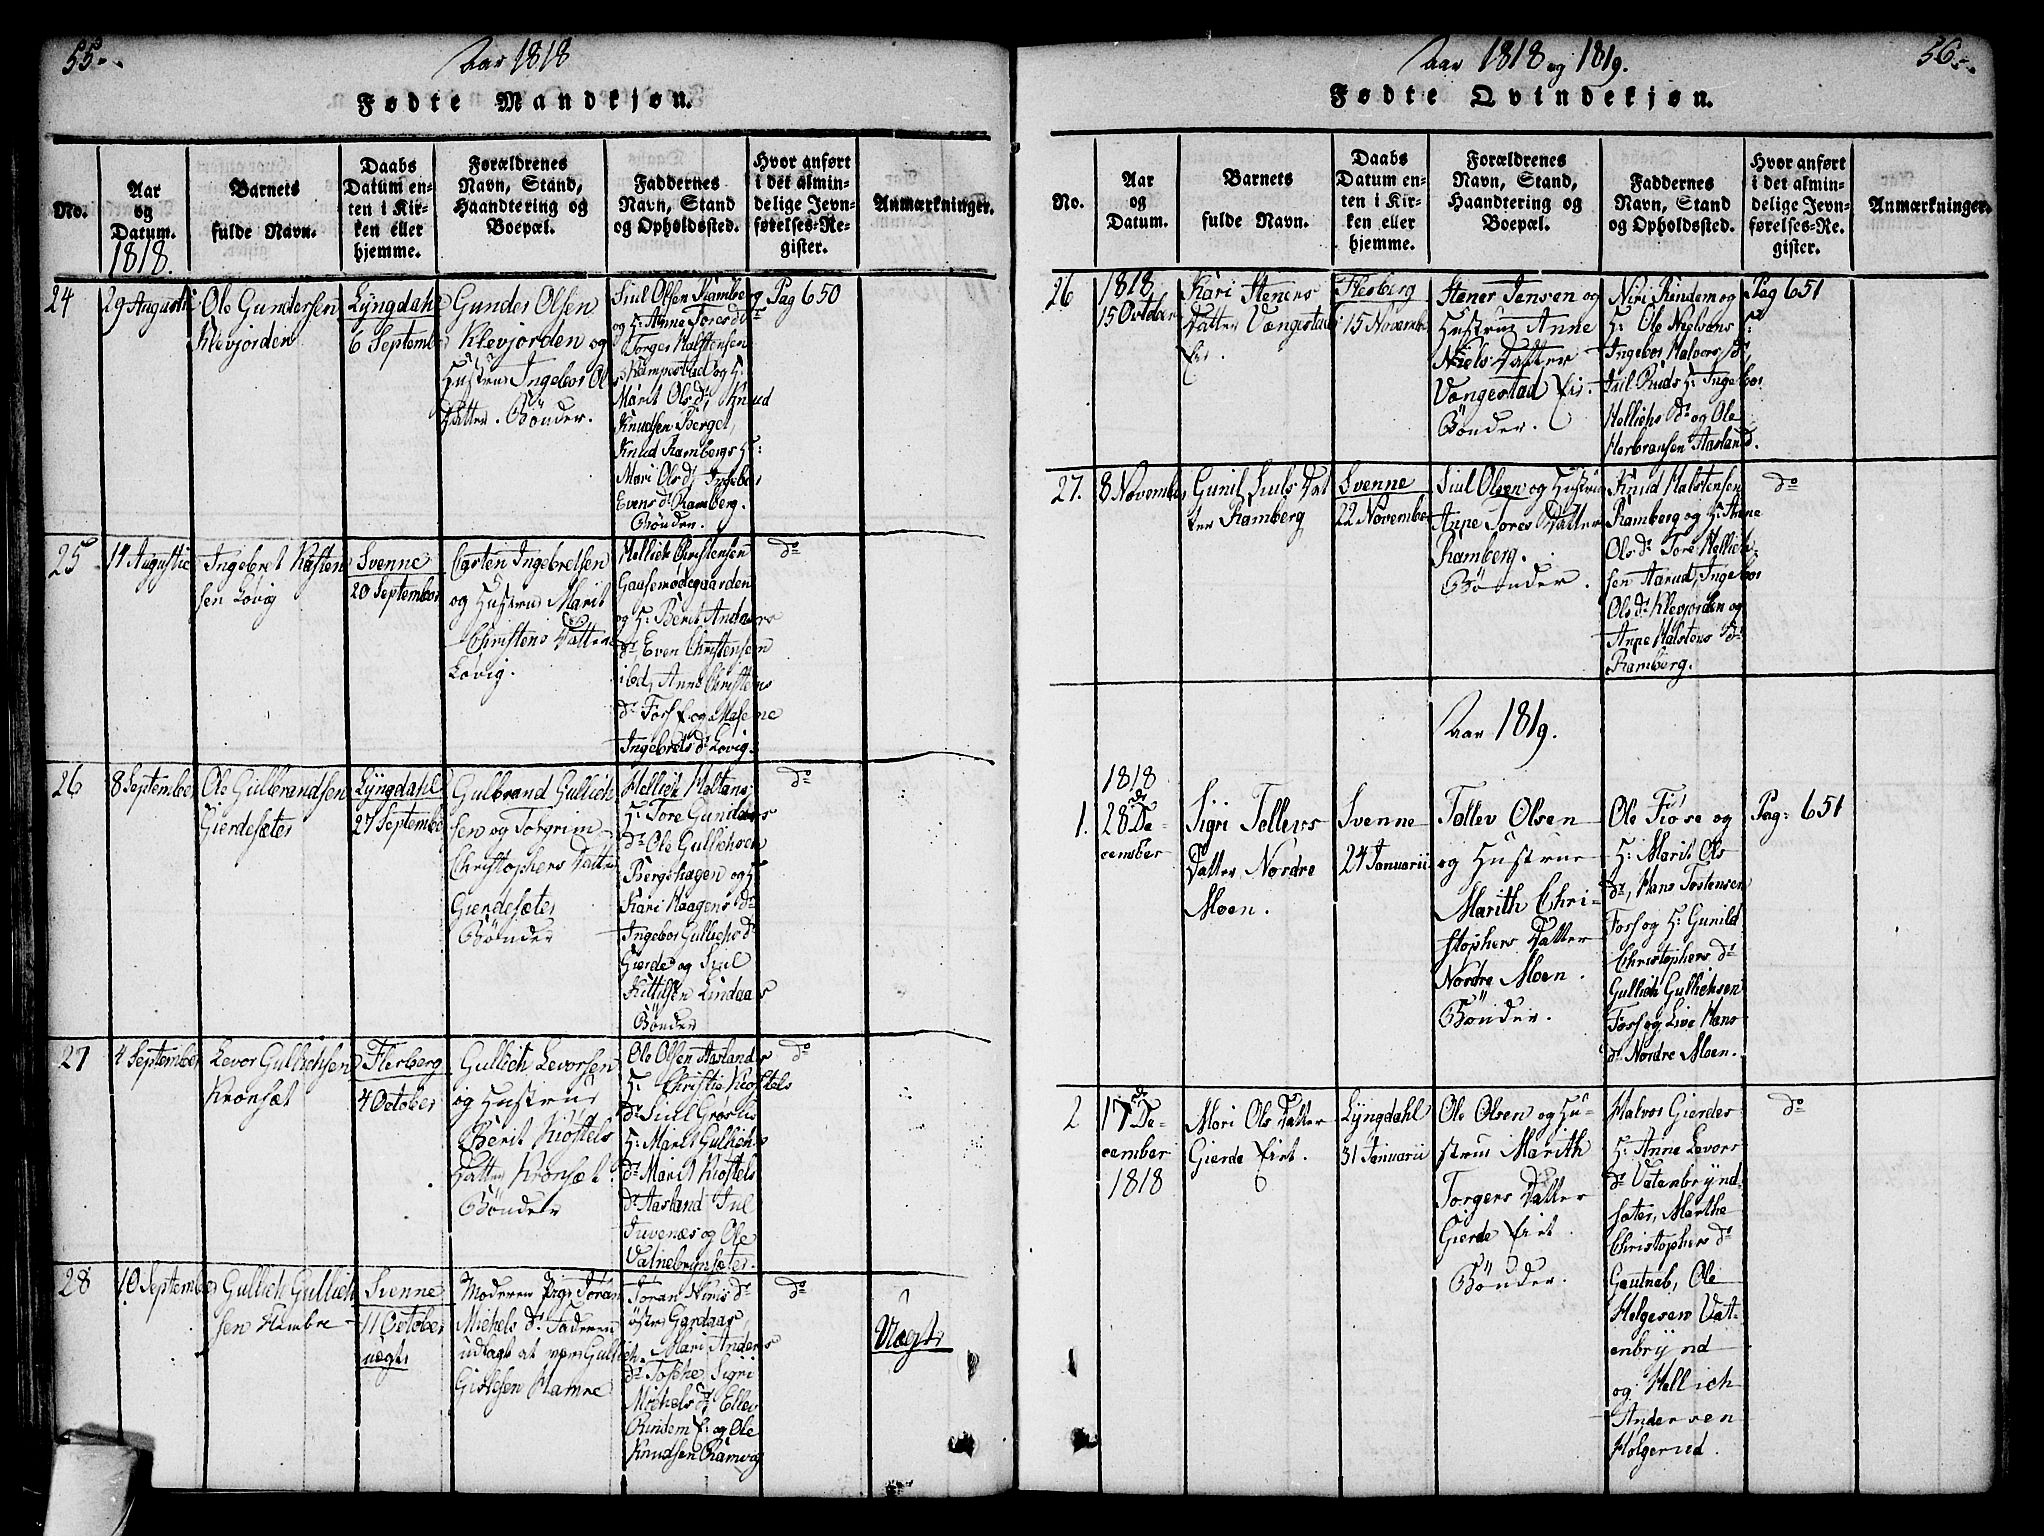 55.
Aar 1818
Fødte Mandkjøn.
No.
Aar
og
Datum.
1818.
Barnets
fulde Navn.
Daabs
Datum en-
ten i Kir-
ken eller
hjemme.
Forældrenes
Navn, Stand,
Haandtering og
Boepæl.
Faddernes
Navn, Stand
og Opholdssted.
Hvor anført
i det almin-
delige Jevn-
førelses-Re-
gister.
Anmærkninger.
24
29 Augustii
Ole Gundersen
Klevjorden
Lyngdahl
6 September
Gunder Olsen
Klevjorden og
Hustrue Ingebor Ols
Datter. Bønder.
Siul Olsen Ramberg
og H: Anne Tores dr
Torger Halstensen
Kampestad og H:
Marit Olsdr, Knud
Knudsen Berget,
Knud Rambergs H:
Mari Olsdr, Ingebor
Evens dr Ramberg.
Bønder.
Pag 650
25
14 Augustii
Ingebret Kasten
sen Lovig
Svenne
20 September
Carsten Ingebretsen
og Hustrue Marit
Christens Datter
Lovig.
Hellich Christensen
Gaasemødegaarden
og H: Berit Anders
dr, Even Christensen
ibd, Anne Christens
dr Foss E. og Malene
Ingebrets dr Lovig.
do
26
8 September
Ole Gulbrandsen
Gierdesæter
Lyngdahl
27 September
Gulbrand Gullich
sen og Torgrim
Christophers Datter
Gierdesæter
Bønder
Hellich
H: Tore Gunders
dr Ole Gullichsen
Bergshagen og H
Kari Haagens dr
Ingebor Gullichs dr
Gierde og Siul
Kittilsen Lindaas
Bønder
do
27
4 September
Levor Gullichsen
Kronsæt
Flesberg
4 October
Gullich Levorsen
og Hustrue
Berit Kiøstels
Datter Kronsæt.
Bønder
Ole Olsen Aaslands
H: Christie Kiøstels
dr Siul
H: Marit Gullichs
dr Marit Kiøstels
dr Aasland Juel
Juvenæs og Ole
Vatnebrynsæter.
do
28
10 September
Gullich Gullich
sen Hambre
Svenne
11 October
uægte
Moderen Pige Jøran
Michels dr Faderen
udlagt at være Gullich
Gislesen Hamre
Jøran Niels dr
østre Gardaas,
Mari Anders
dr Tophe, Sigri
Michels dr, Ellev
Rindem E: og Ole
Knudsen Ramvig
do
Uægte
Aar 1818 og 1819.
56.
Fødte Qvindekjøn.
No.
Aar
og
Datum.
Barnets
fulde Navn.
Daabs
Datum en-
ten i Kir-
ken eller
hjemme.
Forældrenes
Navn, Stand,
Haandtering og
Boepæl.
Faddernes
Navn, Stand
og Opholdssted.
Hvor anført
i det almin-
delige Jevn-
førelses-Re-
gister.
Anmærkninger.
26
1818
15 October
Kari Steners
Datter Vangestad
Eie.
Flesberg
15 November
Stener Jensen og
Hustrue Anne
Niels Datter
Vangestad Eie.
Bønder.
Niri Rindem og
H: Ole Nielsens H:
Ingebor Halvors dr,
Juel Ruds H: Ingebor
Hellichs dr og Ole
Herbransen Aasland.
Pag 651
27.
8 November
Gunil Siuls Dat
ter Ramberg
Svenne
22 November
Siul Olsen og Hustrue
Anne Tores Datter
Ramberg.
Bønder.
Knud Halstensen
Ramberg og H: Anne
Olsdr Tore Hellich-
sen Aarud, Ingebor
Olsdr Klevjorden og
Anne Halstens dr
Ramberg.
do
Aar 1819.
1.
1818
28 de De-
cember
Sigri Tollevs
Datter Nordre
Moen.
Svenne
24 Januarii
Tollev Olsen
og Hustrue
Marith Chri-
stophers Datter
Nordre Moen.
Bønder.
Ole Fiøse og
H: Marit Ols
dr, Hans Tostensen
Foss og H: Gunild
Christophers dr
Gullich Gullichsen
Foss og Live Hans
dr Nordre Moen.
Pag: 651
2
17 de De-
cember
1818
Mari Ols Datter
Gierde Eiet.
Lyngdahl
31 Januarii
Ole Olsen og Hu-
strue Marith
Torgers Datter
Gierde Eiet.
Bønder.
Halvor Gierdes
H: Anne Levors
dr Vatenbrynd-
sæter, Marthe
Christophers dr
Gautneb, Ole
Helgesen Vat-
enbrynd
og Hellich
Andersen
Holgerud.
do